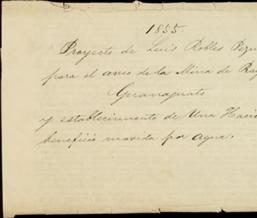 1855
Proyecto de Luis Robles Pezue
para el avio de la Mina de Ray
Guanajuato
y establecimiento de Una Hacie
beneficio movida por agua.